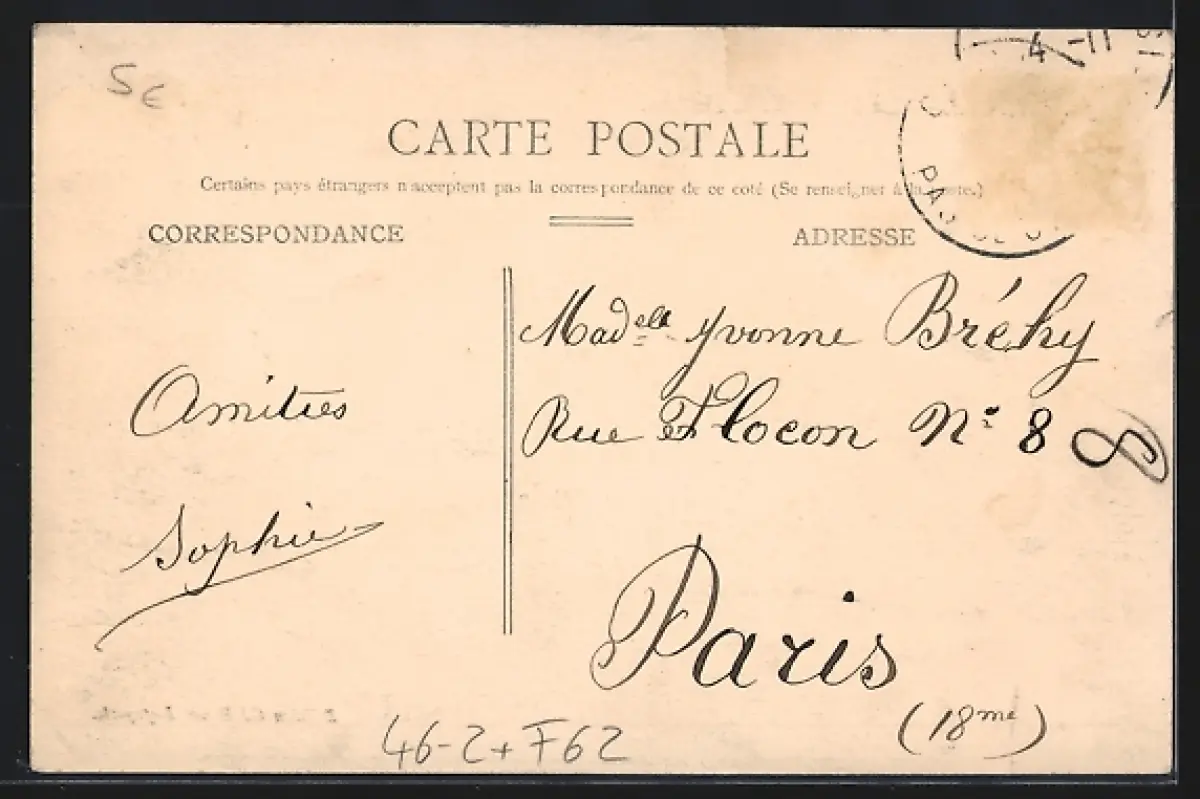 5€
4 -11
CARTE POSTALE
Certains pays étrangers n'acceptent pas la correspondance de ce coté (Se renseigner à la poste.)
PAS DE
CORRESPONDANCE
ADRESSE
Madelle Yvonne Bréhy
Rue Flocon N° 8 8
Amitiés
Sophie
Paris
(18me)
46-2+ F62